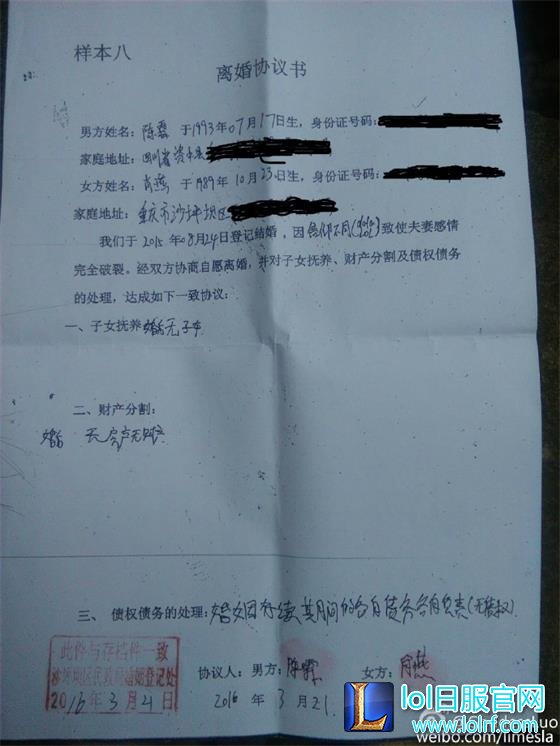 样本八
离婚协议书
男方姓名：陈霖 于1993年07月17日生，身份证号码：
家庭地址：四川省资中县
女方姓名：肖燕 于1989年10月23日生，身份证号码：
家庭地址：重庆市沙坪坝区
我们于2015年08月24日登记结婚，因 致使夫妻感情
完全破裂。经双方协商自愿离婚，并对子女抚养、财产分割及债权债务
的处理，达成如下一致协议：
一、子女抚养 婚后无子女
二、财产分割：
婚后 无房产无财产
三、债权债务的处理：婚姻因存续其间的各自债务各自负责（无债权）
此件与存档件一致
沙坪坝区民政局婚姻登记处
2016年3月21日
协议人：男方：陈霖 女方：肖燕
2016年 3月21.
lol日服官网
www.lolrf.com
weibo.com/limesla